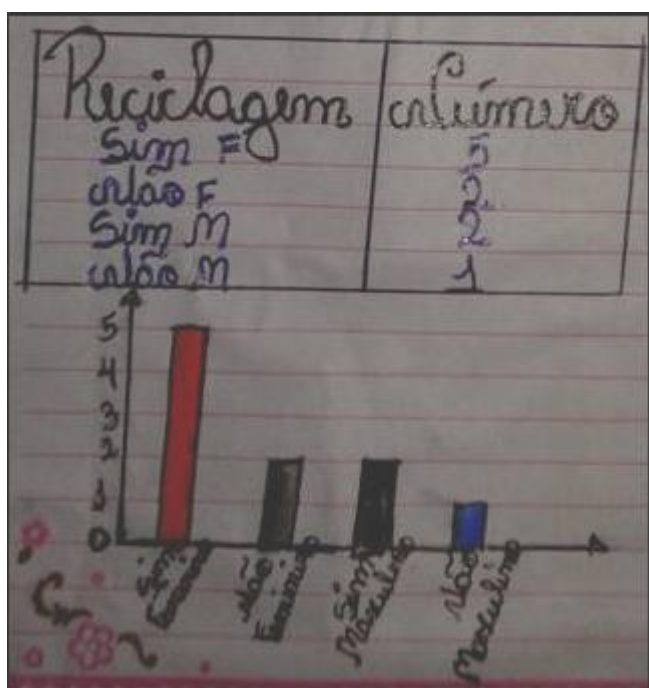 Reciclagem Número
Sim F 5
Não F 2
Sim M 2
Não M 1
5
4
3
2
1
0
Sim Feminino
Não Feminino
Sim Masculino
Não Masculino